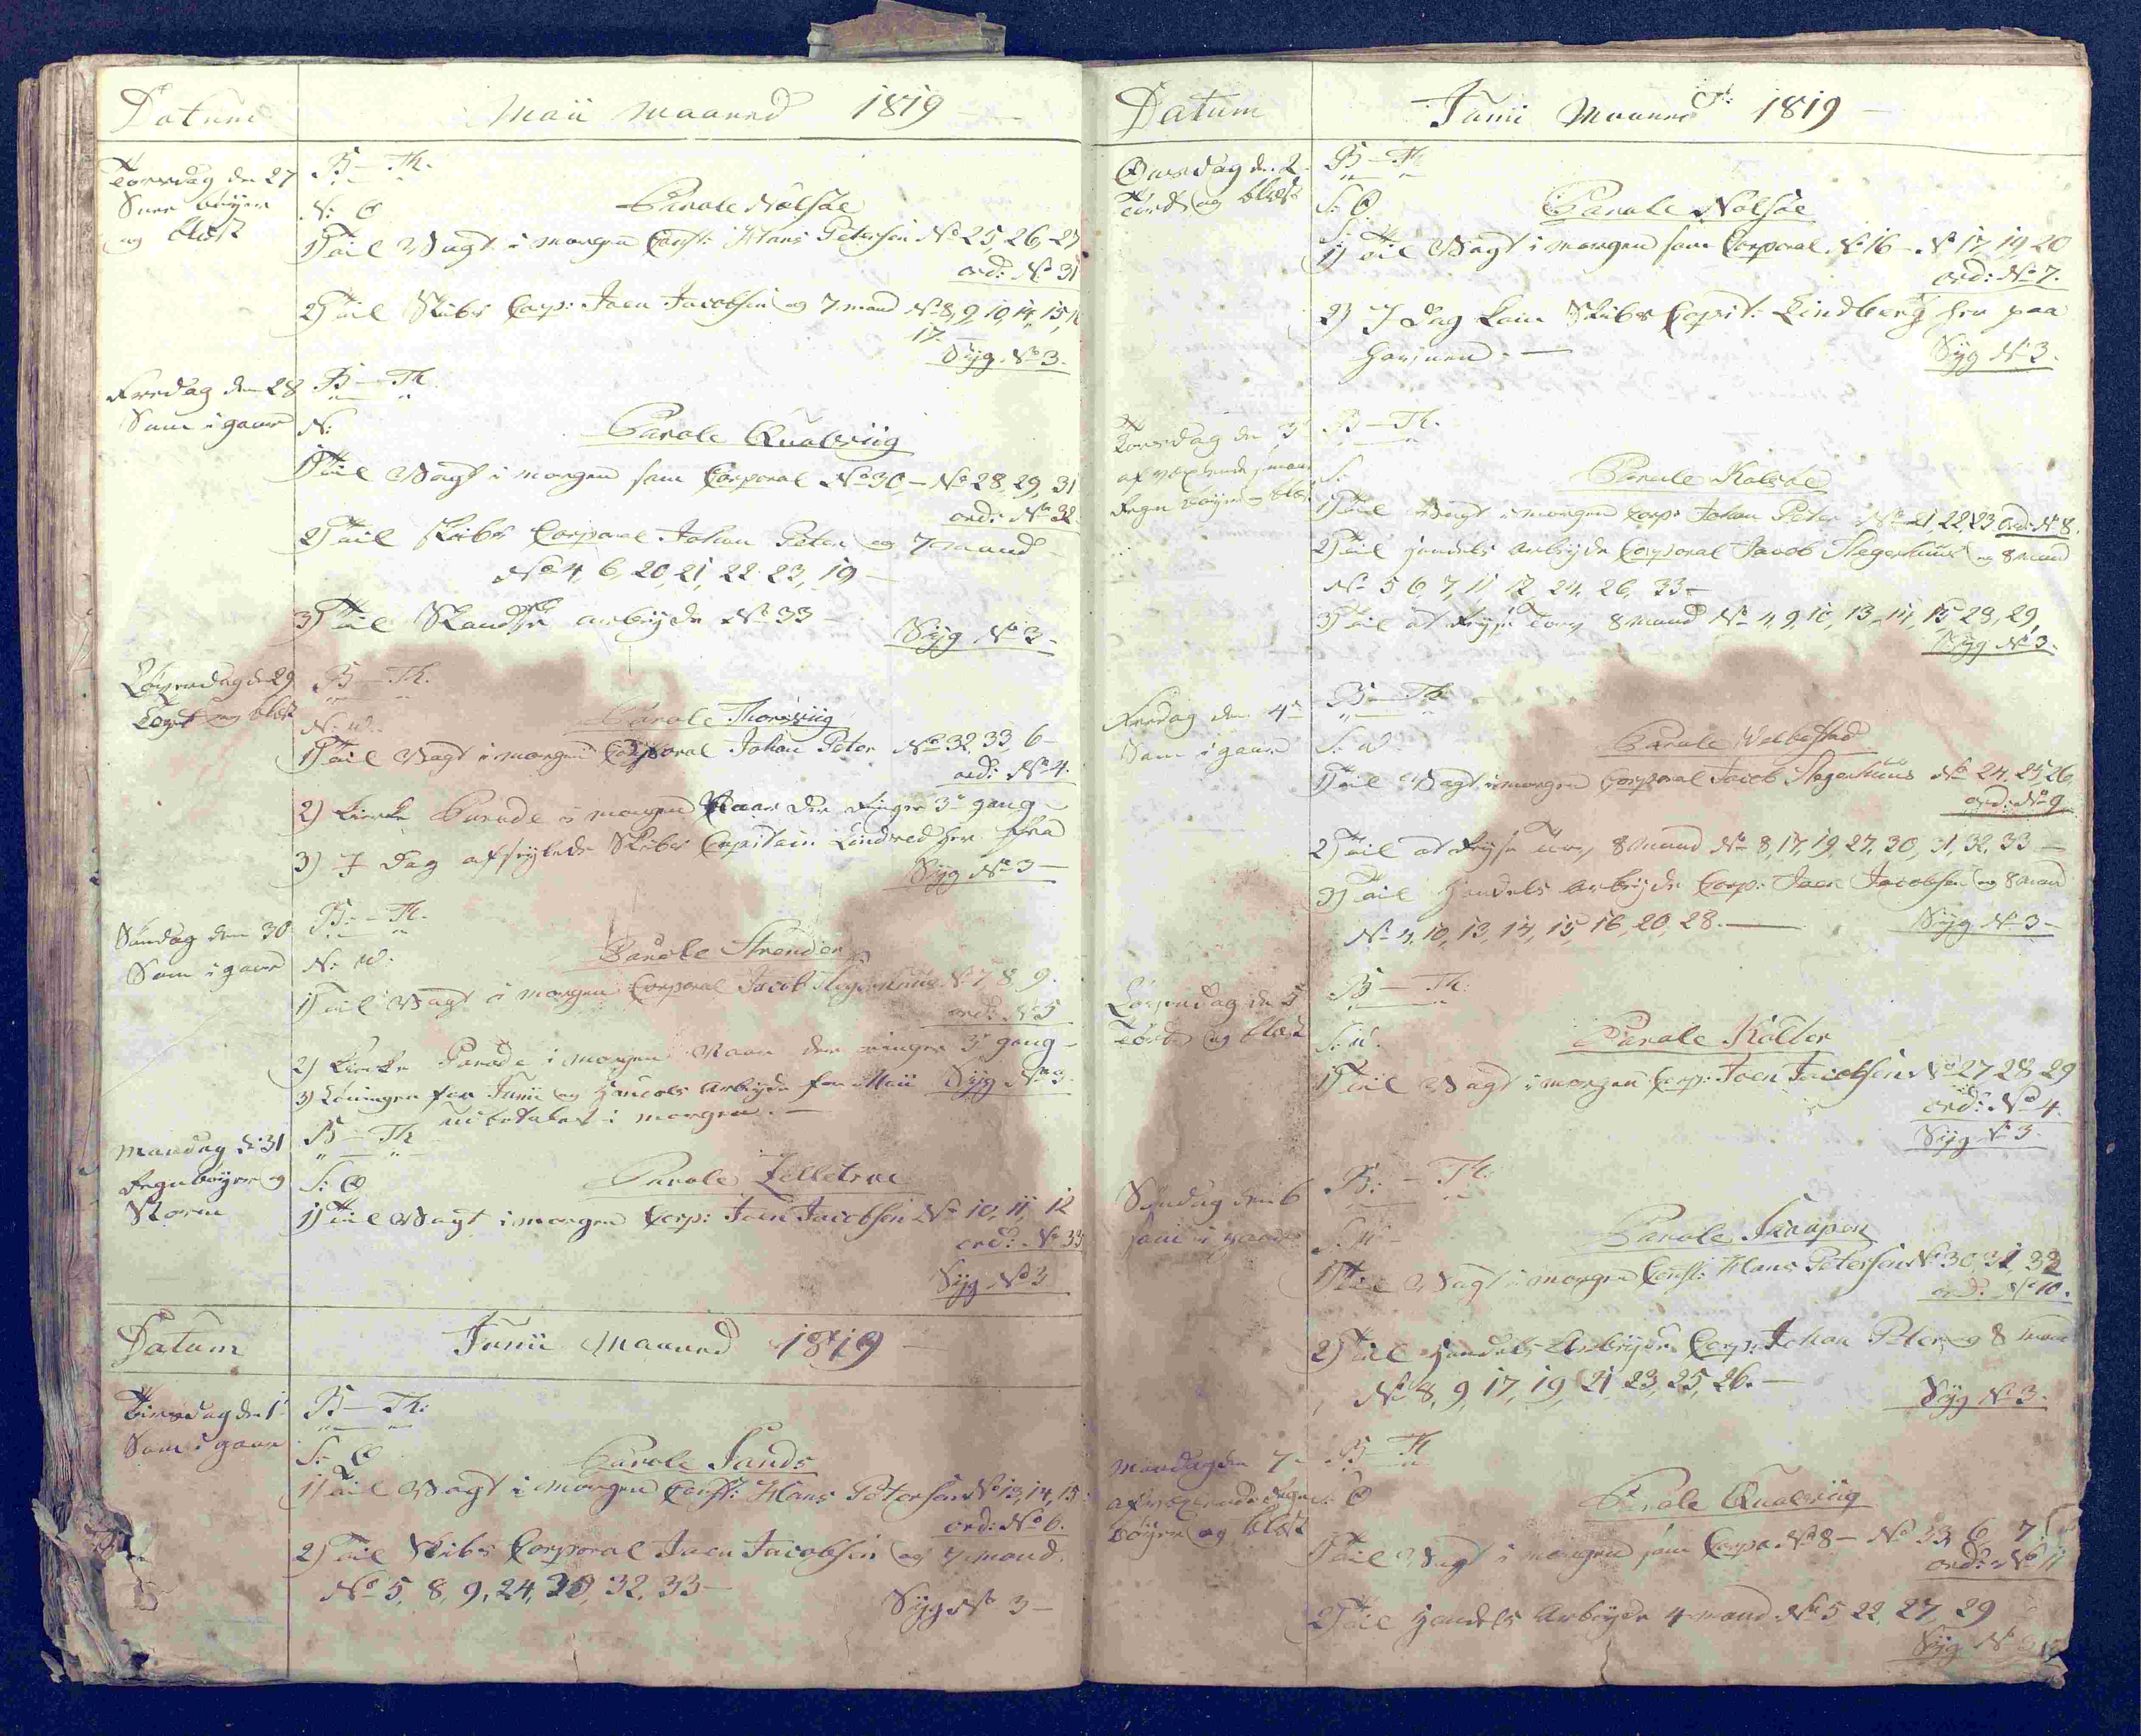 Datum
Maii Maaned 1819
Torsdag den 27
Snee böyer
og blæst
B - Th.
N: O
Parole Nolsöe
1) Til Vagt i morgen Const: Hans Petersen No 25, 26, 27
ord: No 31
2) Til Skibs Corp: Joen Jacobsen og 7 mand No 8, 9, 10, 14, 15, 16
17
Syg No 3.
Fredag den 28
Som i gaar
B - Th.
N:
Parole Qualviig
1) Til Vagt i morgen som Corporal No 30 - No 28, 29, 31
ord: No 32
2) Til Skibs Corporal Johan Peter og 7 mand
No 4, 6, 20, 21, 22, 23, 19 -
3) Til Skandse arbeyde No 33 -
Syg No 3 -
Löverdag d: 29
og blæst
B - Th.
N: W.
Parole Thorsviig
1) Til Vagt i morgen Corporal Johan Peter No 32, 33, 6 -
ord: No 4.
2) Kirke Parade i morgen Naar der ringes 3de gang -
3) I Dag afseylede Skibs Capitain Lindved her fra
Syg No 3 -
Söndag den 30
Som i gaar
B: - Th.
N: W.
Parole Strender
1) Til Vagt i morgen Corporal Jacob Stegerhuus No 7, 8, 9.
ord: No 5
2) Kirke Parade i morgen Naar der ringes 3de gang -
3) Löningen for Junii og Handels Arbeyde for Maii
Syg No 3.
udbetales i morgen. -
Mandag d: 31
Regnböyer og
Storm
B - Th
S: O
Parole Zelletræ
1) Til Vagt i morgen Corp: Joen Jacobsen No 10, 11, 12
ord: No 33
Syg No 3
Datum
Junii Maaned 1819 -
Tirsdag den 1
Som i gaar
B - Th:
S: O
Parole Sands
1) Til Vagt i morgen Const: Hans Petersen No 13, 14, 15
ord: No 6.
2) Til Skibs Corporal Joen Jacobsen og 7 mand
No 5, 8, 9, 24, 32, 33 -
Syg No 3 -
Datum
Junii Maaned 1819 -
Onsdag den 2
og blæst
B - Th
S: O
Parole Nolsöe
1) Til Vagt i morgen som Corporal No 16 - No 17, 19, 20
ord: No 7.
2) I Dag kom Skibs Capit: Lindberg her paa
Havnen. -
Syg No 3.
Torsdag den 3
afvexlende
Regn böyer og blæst
B - Th.
S:
Parole Kolsöe
1) Til Vagt i morgen Corp: Johan Peter No 21 22 23 Ord: No 8.
2) Til Handels Arbeyde Corporal Jacob Stegerhuus og 8 mand
No 5, 6, 7, 11, 12, 24, 26, 33 -
3) Til at 8 mand No 4, 9, 10, 13, 14, 15, 28, 29,
Syg No 3.
Fredag den 4
Som i gaar
B - Th
S: W.
Parole Welbestad
1) Til Vagt i morgen Corporal Jacob Stegerhuus No 24, 25, 26
ord: No 9
2) Til at 8 mand No 8, 17, 19, 27, 30, 31, 32, 33 -
3) Til Handels Arbeyde Corp: Joen Jacobsen og 8 mand
No 4, 10, 13, 14, 15, 16, 20, 28. -
Syg No 3 -
Löverdag den 5
og blæst
B - Th:
Parole Kolter
1) Til Vagt i morgen Corp: Joen Jacobsen No 27, 28, 29
ord: No 4.
Syg No 3.
Söndag den 6
som i gaar
B: - Th:
Parole
1) Til Vagt i morgen Const: Hans Petersen No 30, 31, 32
ord: No 10.
2) Til Handels Arbeyde Corp: Johan Peter og 8 mand
No 8, 9, 17, 19, 21, 23, 25, 26. -
Syg No 3.
Mandag den 7
afvexlende Regn
böyer og blæst
B - Th
O
Parole Qualviig
1) Til Vagt i morgen som Corpo: No 8 - No 33, 6, 7
ord: No 11
2) Til Handels Arbeyde 4 mand No 5, 22, 27, 29
Syg No